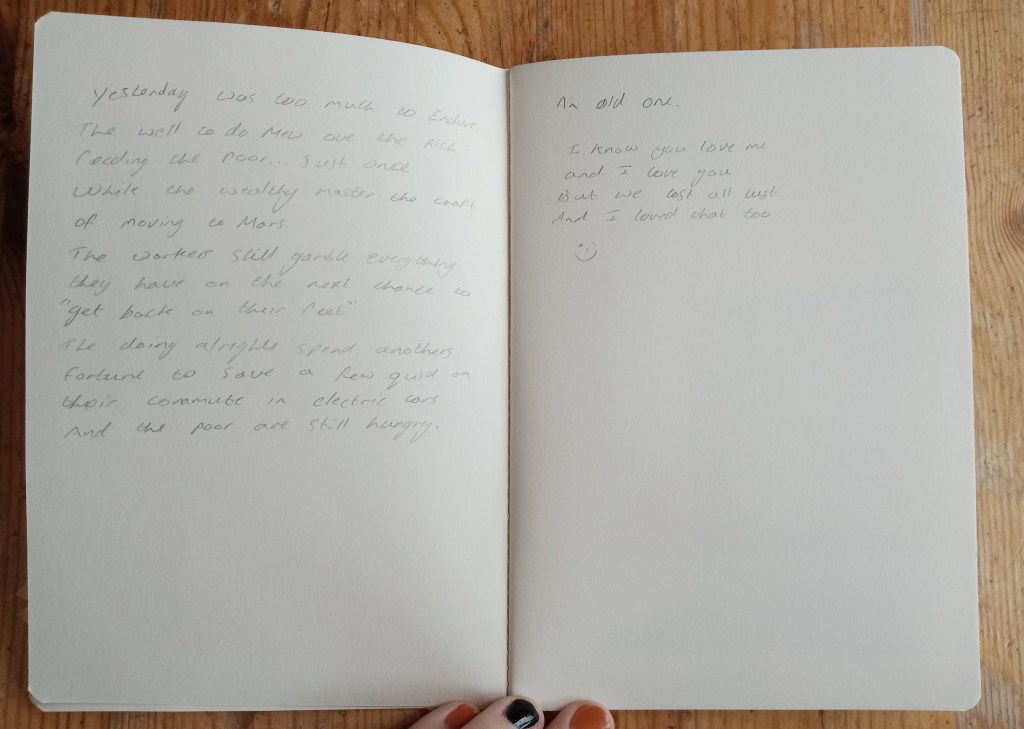 Yesterday was too much to Endure.
The well to do Mew over the Rich
feeding the poor... Just once
While the wealthy master the craft
of moving to Mars.
The workers still gamble everything
they have on the next chance to
"get back on their feet"
The doing alrights spend anothers
fortune to save a few quid on
their commute in electric cars
And the poor are still hungry.
An old one.
I know you love me
and I love you
But we lost all lust
And I loved that too